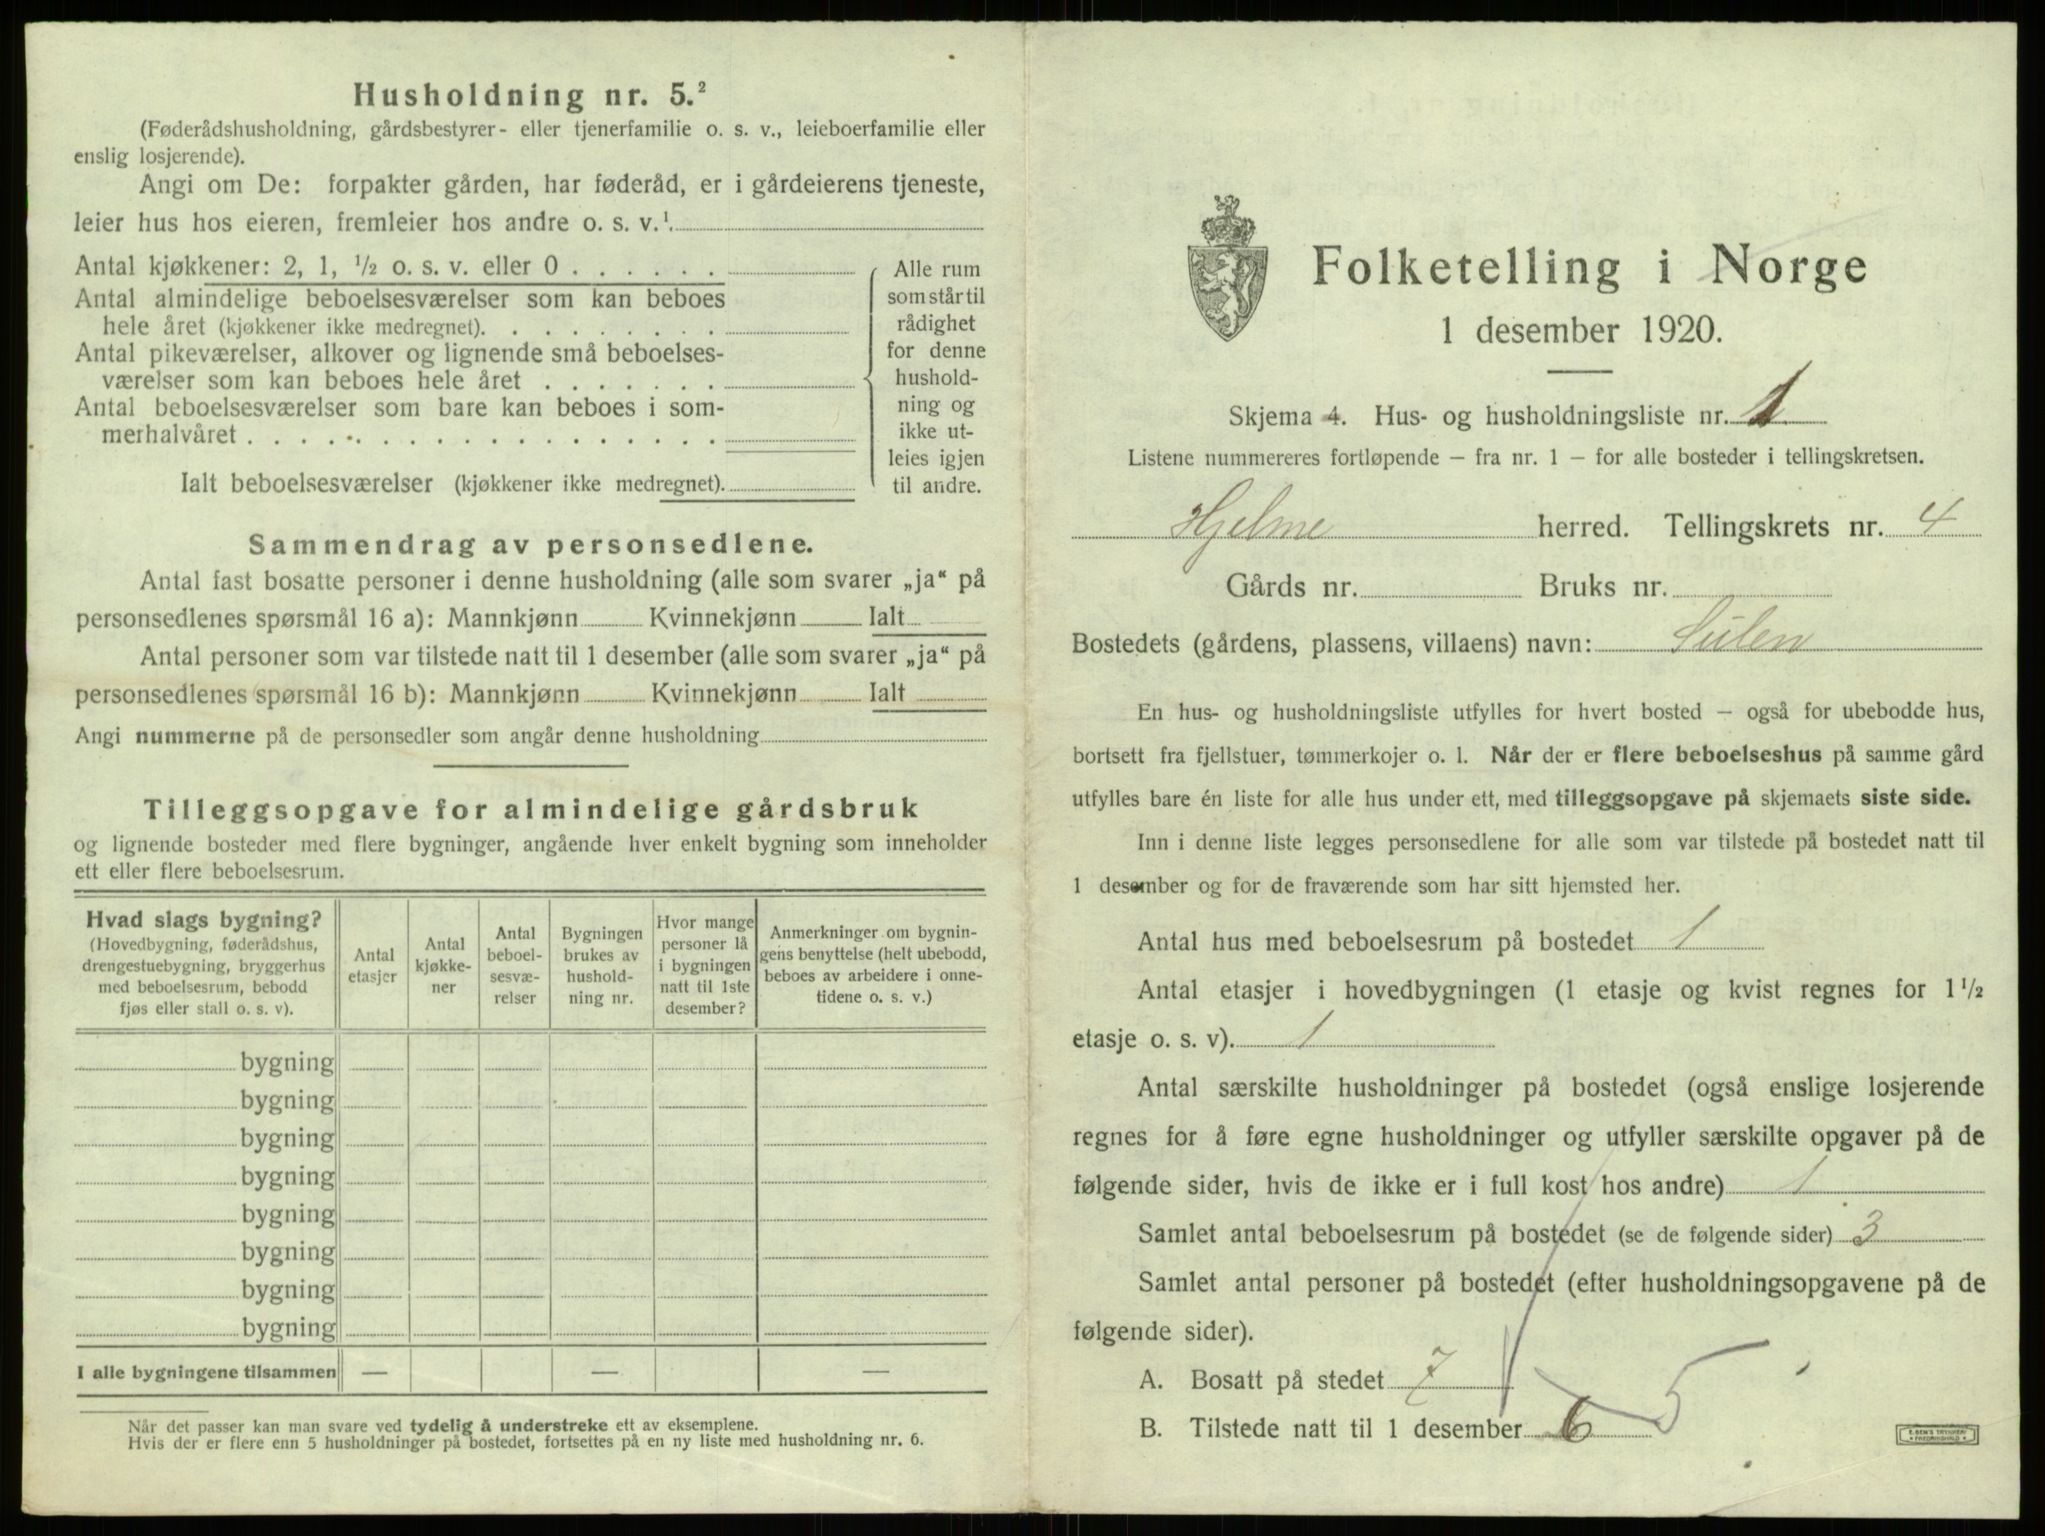 Husholdning nr. 5.²
(Føderådshusholdning, gårdsbestyrer- eller tjenerfamilie o. s. v., leieboerfamilie eller
enslig losjerende).
Angi om De: forpakter gården, har føderåd, er i gårdeierens tjeneste,
leier hus hos eieren, fremleier hos andre o. s. v.¹.
Antal kjøkkener: 2, 1, ½ o. s. v. eller 0 . . . . . .
Antal almindelige beboelsesværelser som kan beboes
hele året (kjøkkener ikke medregnet). . . . . . . . .
Antal pikeværelser, alkover og lignende små beboelses-
værelser som kan beboes hele året . . . . . . .
Antal beboelsesværelser som bare kan beboes i som-
merhalvåret . . . . . . . . . . . . . . . . . .
Ialt beboelsesværelser (kjøkkener ikke medregnet).
Alle rum
som står til
rådighet
for denne
hushold-
ning og
ikke ut-
leies igjen
til andre.
Sammendrag av personsedlene.
Antal fast bosatte personer i denne husholdning (alle som svarer „ja“ på
personsedlenes spørsmål 16 a): Mannkjønn Kvinnekjønn Ialt
Antal personer som var tilstede natt til 1 desember (alle som svarer „ja“ på
personsedlenes spørsmål 16 b): Mannkjønn Kvinnekjønn Ialt
Angi nummerne på de personsedler som angår denne husholdning
Tilleggsopgave for almindelige gårdsbruk
og lignende bosteder med flere bygninger, angående hver enkelt bygning som inneholder
ett eller flere beboelsesrum.
Hvad slags bygning?
(Hovedbygning, føderådshus,
drengestuebygning, bryggerhus
med beboelsesrum, bebodd
fjøs eller stall o. s. v).
Antal
etasjer
Antal
kjøkke-
ner
Antal
beboel-
sesvæ-
relser
Bygningen
brukes av
hushold-
ning nr.
Hvor mange
personer lå
i bygningen
natt til 1ste
desember?
Anmerkninger om bygnin-
gens benyttelse (helt ubebodd,
beboes av arbeidere i onne-
tidene o. s. v.)
bygning
bygning
bygning
bygning
bygning
bygning
bygning
bygning
I alle bygningene tilsammen — — —
Når det passer kan man svare ved tydelig å understreke ett av eksemplene.
Hvis der er flere enn 5 husholdninger på bostedet, fortsettes på en ny liste med husholdning nr. 6.
Folketelling i Norge
1 desember 1920.
Skjema 4. Hus- og husholdningsliste nr. 1
Listene nummereres fortløpende — fra nr. 1 — for alle bosteder i tellingskretsen.
Hjelme herred. Tellingskrets nr. 4
Gårds nr. Bruks nr.
Bostedets (gårdens, plassens, villaens) navn: Sulen
En hus- og husholdningsliste utfylles for hvert bosted — også for ubebodde hus,
bortsett fra fjellstuer, tømmerkojer o. l. Når der er flere beboelseshus på samme gård
utfylles bare én liste for alle hus under ett, med tilleggsopgave på skjemaets siste side.
Inn i denne liste legges personsedlene for alle som var tilstede på bostedet natt til
1 desember og for de fraværende som har sitt hjemsted her.
Antal hus med beboelsesrum på bostedet 1
Antal etasjer i hovedbygningen (1 etasje og kvist regnes for 1½
etasje o. s. v). 1
Antal særskilte husholdninger på bostedet (også enslige losjerende
regnes for å føre egne husholdninger og utfyller særskilte opgaver på de
følgende sider, hvis de ikke er i full kost hos andre) 1
Samlet antal beboelsesrum på bostedet (se de følgende sider) 3
Samlet antal personer på bostedet (efter husholdningsopgavene på de
følgende sider).
A. Bosatt på stedet 7
B. Tilstede natt til 1 desember 6 5